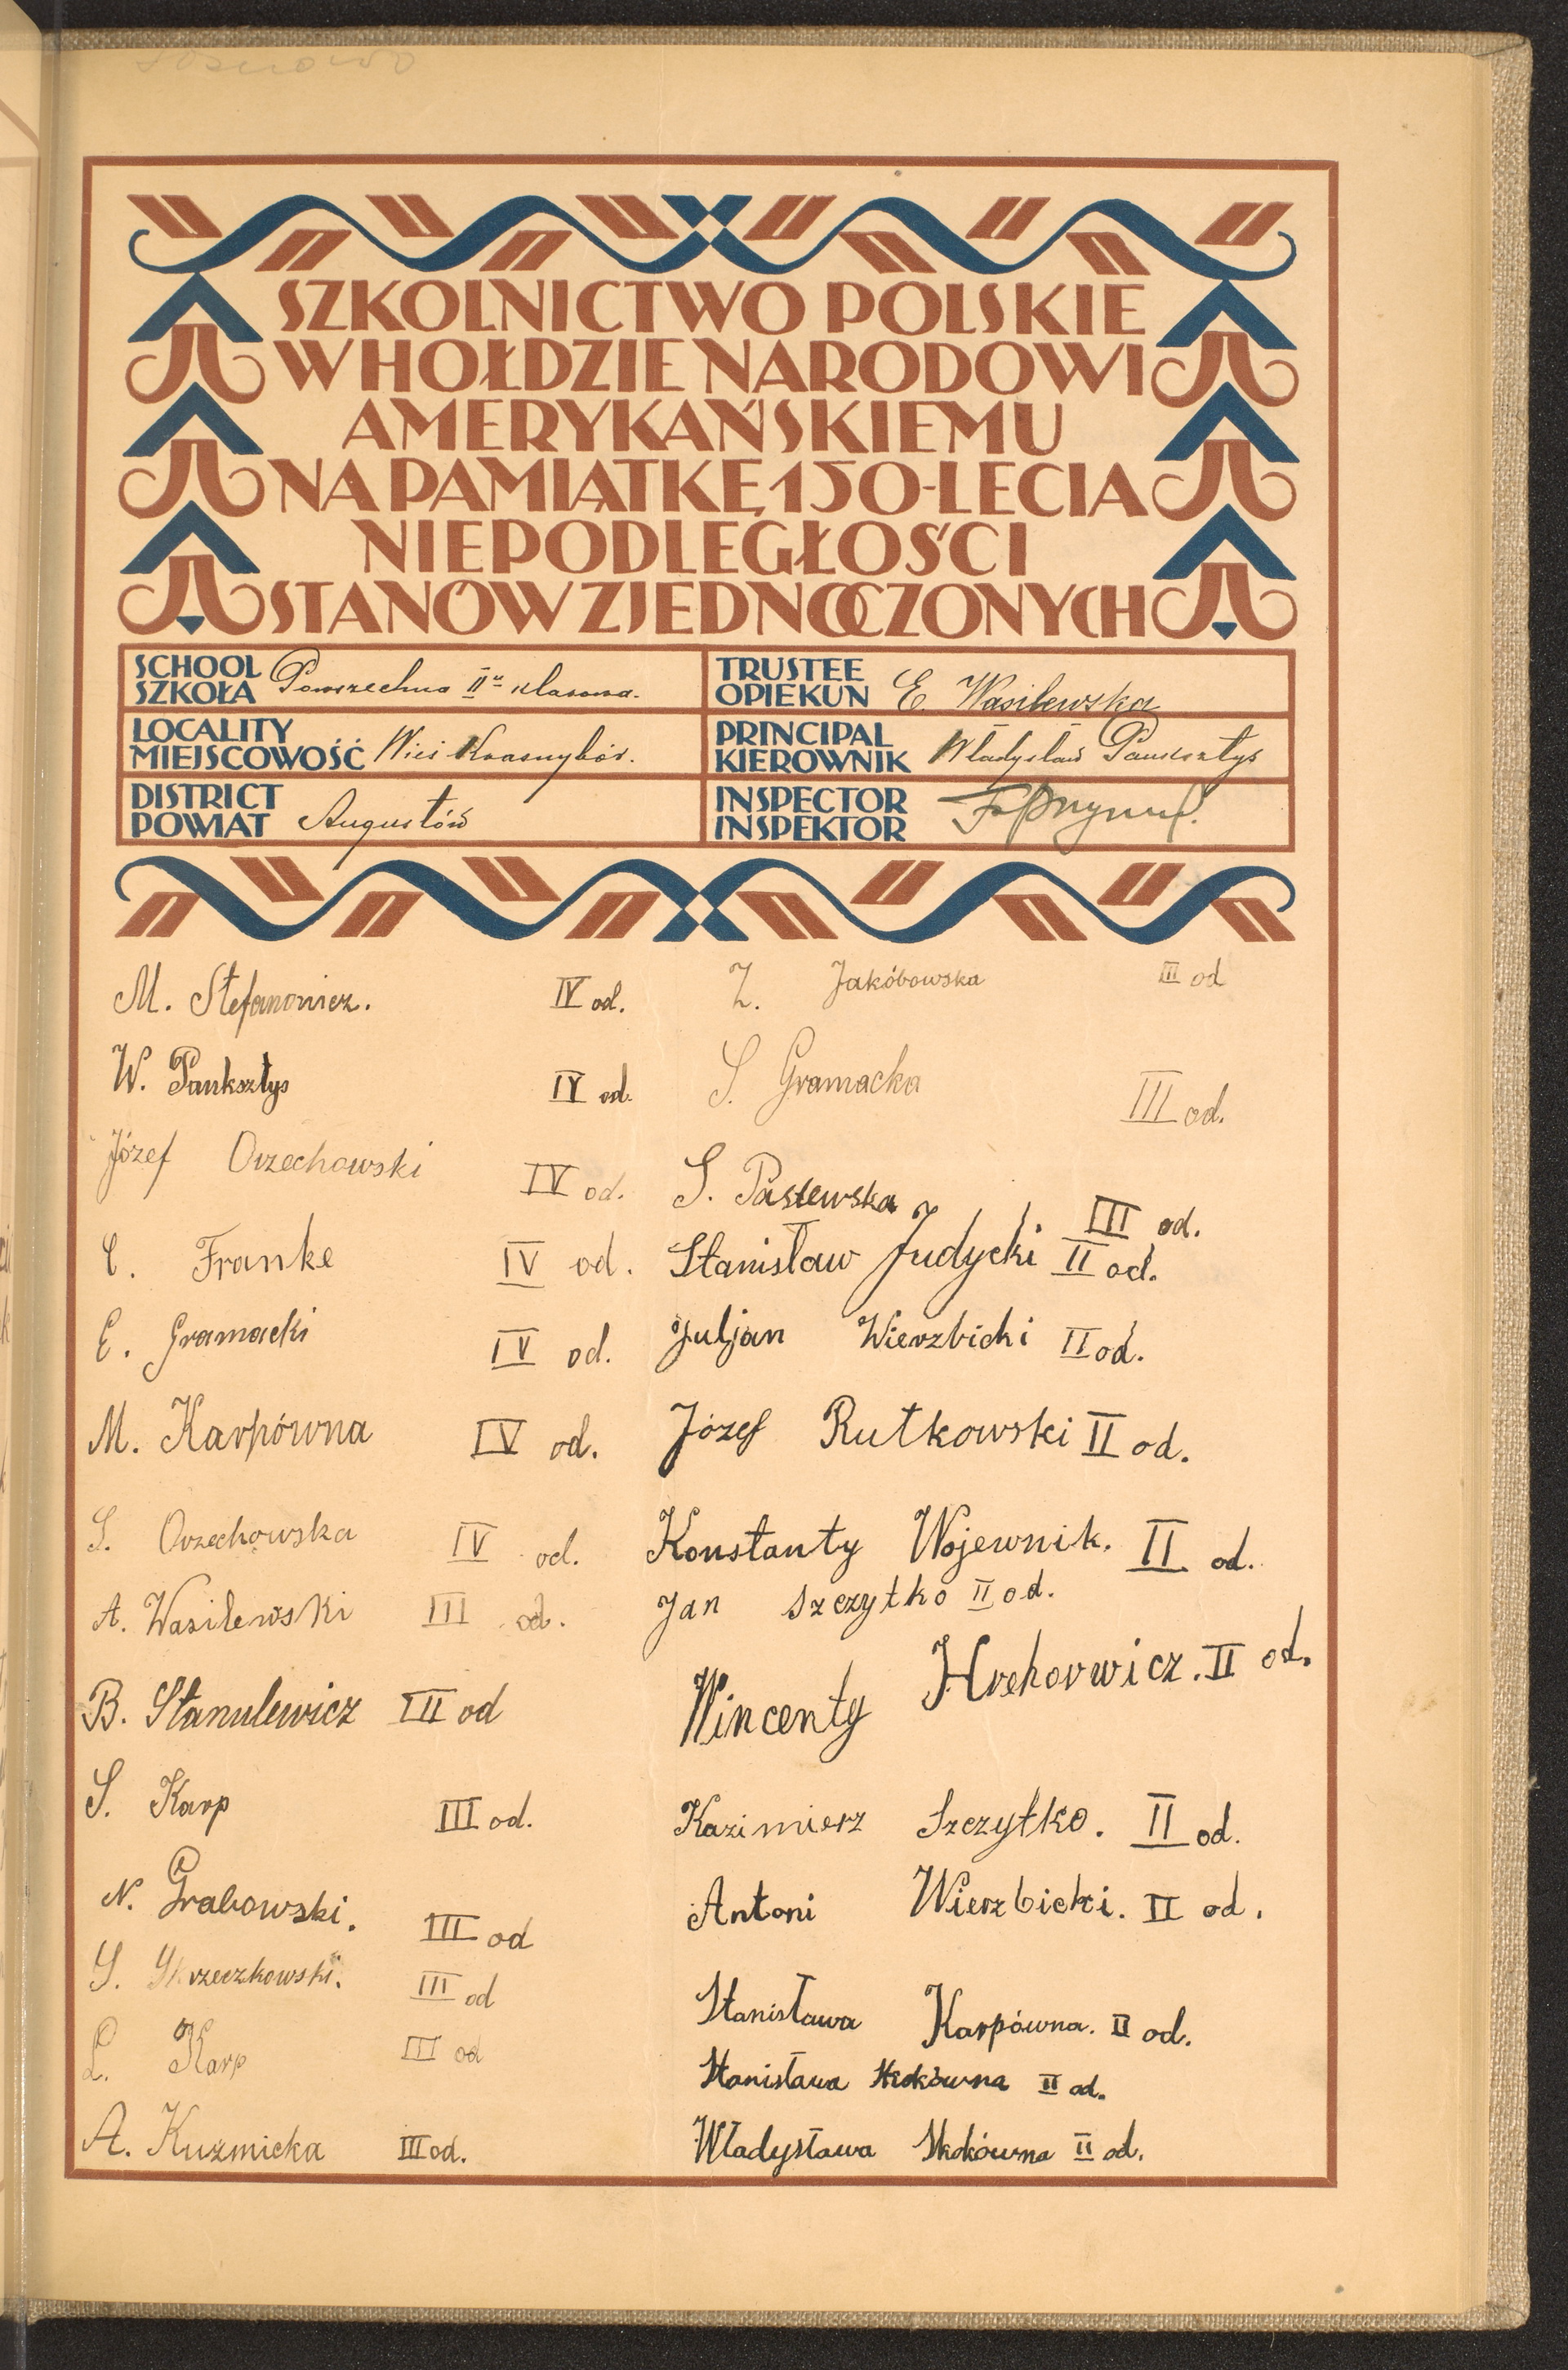 SZKOLNICTWO POLSKIE
W HOŁDZIE NARODOWI
AMERYKAŃSKIEMU
NA PAMIĄTKĘ 150-LECIA
NIEPODLEGŁOŚCI
STANÓW ZJEDNOCZONYCH
SCHOOL
SZKOŁA Powszechna II kl klasowa.
TRUSTEE
OPIEKUN E. Wasilewska
LOCALITY
MIEJSCOWOŚĆ Wieś Krasnybór.
PRINCIPAL
KIEROWNIK Władysław Pauksztys
DISTRICT
POWIAT Augustów
INSPECTOR
INSPEKTOR
M. Stefanowicz. IV od.
W. Pauksztys IV od.
Józef Orzechowski IV od.
C. Franke IV od.
E. Gramacki IV od.
M. Karpówna IV od.
S. Orzechowska IV od.
A. Wasilewski III od.
B. Stanulewicz III od
S. Karp III od.
N. Grabowski. III od
S. III od
L. Karp III od
A. Kuzmicka III od.
Z. Jakóbowska III od
S. Gramacka III od.
S. Pasiewska III od.
Stanisław Judycki II od.
Juljan Wierzbicki II od.
Józef Rutkowski II od.
Konstanty Wojewnik. II od.
Jan Szczytko II od.
Wincenty Hrehorwicz. II od.
Kazimierz Szczytko. II od.
Antoni Wierzbicki. II od.
Stanisława Karpówna. II od.
Stanisława Skokówna II od.
Władysława Skokówna II od.